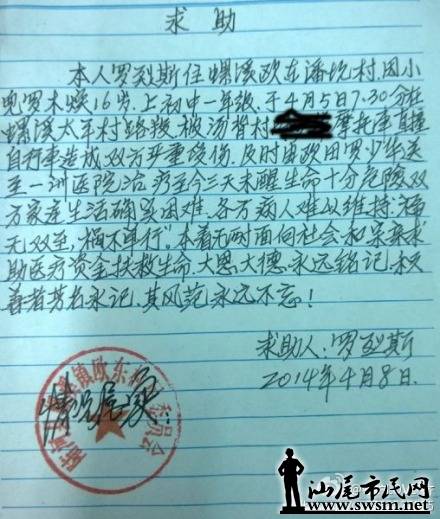 求助
本人罗烈斯住螺溪欧东潘坑村,因小
儿罗木焕16岁.上初中一年级.于4月5日7.30分在
螺溪太平村路段.被汤背村 摩托车直撞
自行车造成双方严重受伤.及时由欧田罗少华送
至一训医院治疗至今三天未醒生命十分危险双
方家庭生活确实困难.各方病人难以维持.福
无双至,"祸不单行".本着无时面向社会和呆呆求
助医疗资金扶救生命.大恩大德.永远铭记.积
善者芳名永记.其风范永远不忘!
求助人:罗烈斯
2014年4月8日.
情况属实
镇欧东村
汕尾市民网
www.swsm.net